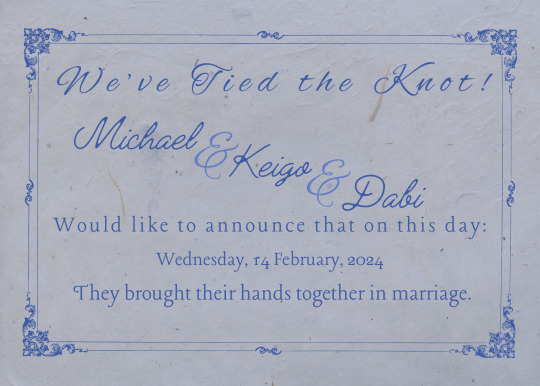 We've Tied the Knot!
Michael & Keigo & Dabi
Would like to announce that on this day:
Wednesday, 14 February, 2024
They brought their hands together in marriage.